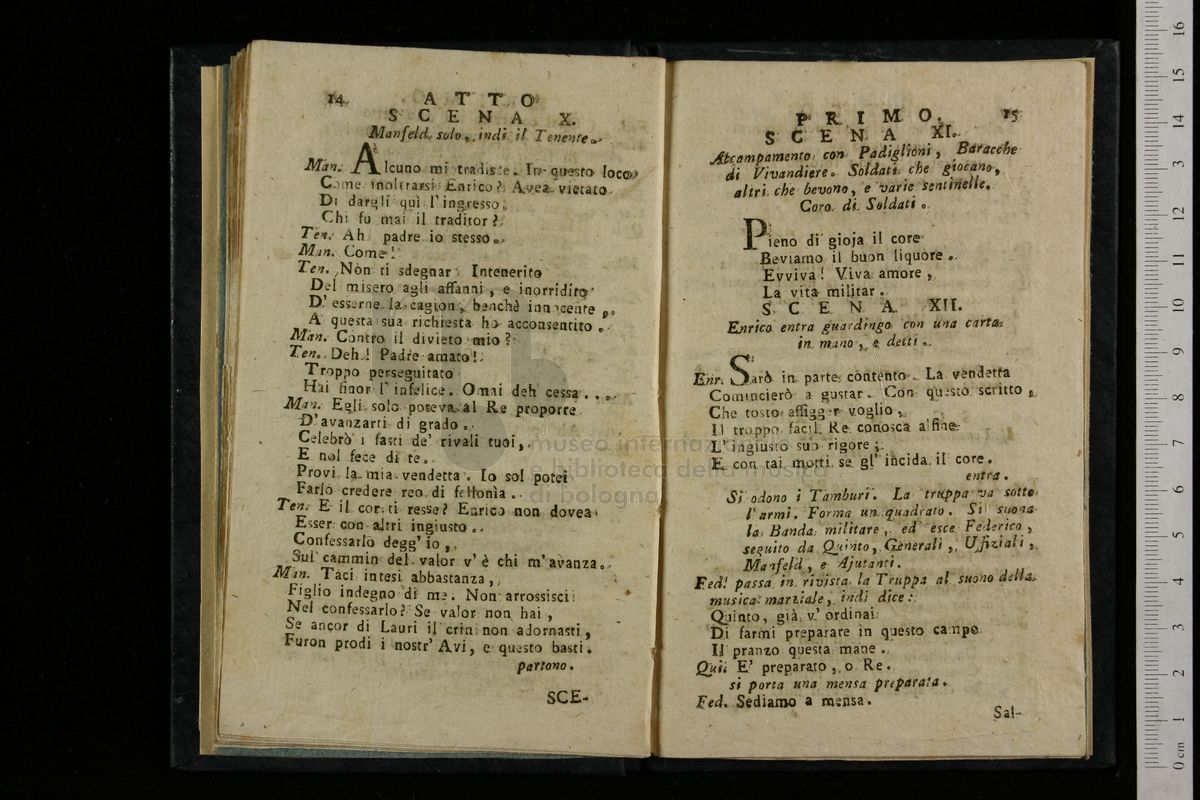 14 ATTO
SCENA X.
Manfeld solo, indi il Tenente.
Man. Alcuno mi tradisce. In questo loco
Come inoltrarsi Enrico? Avea vietato
Di dargli quì l'ingresso.
Chi fu mai il traditor?
Ten. Ah padre io stesso.
Man. Come!
Ten. Non ti sdegnar: Intenerito
Del misero agli affanni, e inorridito
D'esserne la cagion, benchè innocente,
A questa sua richiesta ho acconsentito.
Man. Contro il divieto mio?
Ten. Deh! Padre amato!
Troppo perseguitato
Hai finor l'infelice. Omai deh cessa...
Man. Egli solo poteva al Re proporre
D'avanzarti di grado.
Celebrò i fasti de' rivali tuoi,
E nol fece di te.
Provi la mia vendetta. Io sol potei
Farlo credere reo di fellonìa.
Ten. E il cor ti resse? Enrico non dovea
Esser con altri ingiusto.
Confessarlo degg'io,
Sul cammin del valor v'è chi m'avanza.
Man. Taci intesi abbastanza,
Figlio indegno di me. Non arrossisci
Nel confessarlo? Se valor non hai,
Se ancor di Lauri il crin non adornasti,
Furon prodi i nostr'Avi, e questo basti.
partono.
SCE-
PRIMO. 15
SCENA XI.
Accampamento con Padiglioni, Baracche
di Vivandiere. Soldati che giocano,
altri che bevono, e varie sentinelle.
Coro di Soldati.
Pieno di gioja il core
Beviamo il buon liquore.
Evviva! Viva amore,
La vita militar.
SCENA XII.
Enrico entra guardingo con una carta
in mano, e detti.
Enr. Sarò in parte contento. La vendetta
Comincierò a gustar. Con questo scritto,
Che tosto affigger voglio,
Il troppo facil Re conosca alfine
L'ingiusto suo rigore;
E con tai motti se gl'incida il core.
entra.
Si odono i Tamburi. La truppa va sotto
l'armi. Forma un quadrato. Si suona
la Banda militare, ed esce Federico,
seguito da Quinto, Generali, Uffiziali,
Manfeld, e Ajutanti.
Fed. passa in rivista la Truppa al suono della
musica marziale, indi dice:
Quinto, già v'ordinai
Di farmi preparare in questo campo
Il pranzo questa mane.
Qui. E' preparato, o Re.
si porta una mensa preparata.
Fed. Sediamo a mensa.
Sal-
museo internazionale
e biblioteca della musica
di bologna
0 cm 1 2 3 4 5 6 7 8 9 10 11 12 13 14 15 16